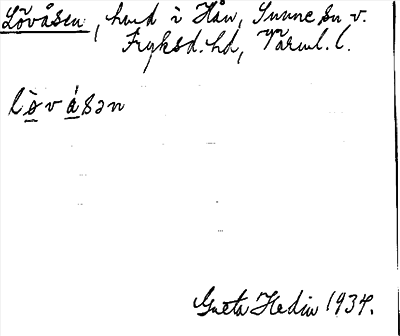 Lövåsen, hmd i Hån, Sunne sn v.
Fryksd. hd, Värml. l.
lòvásən
Greta Hedin 1934.